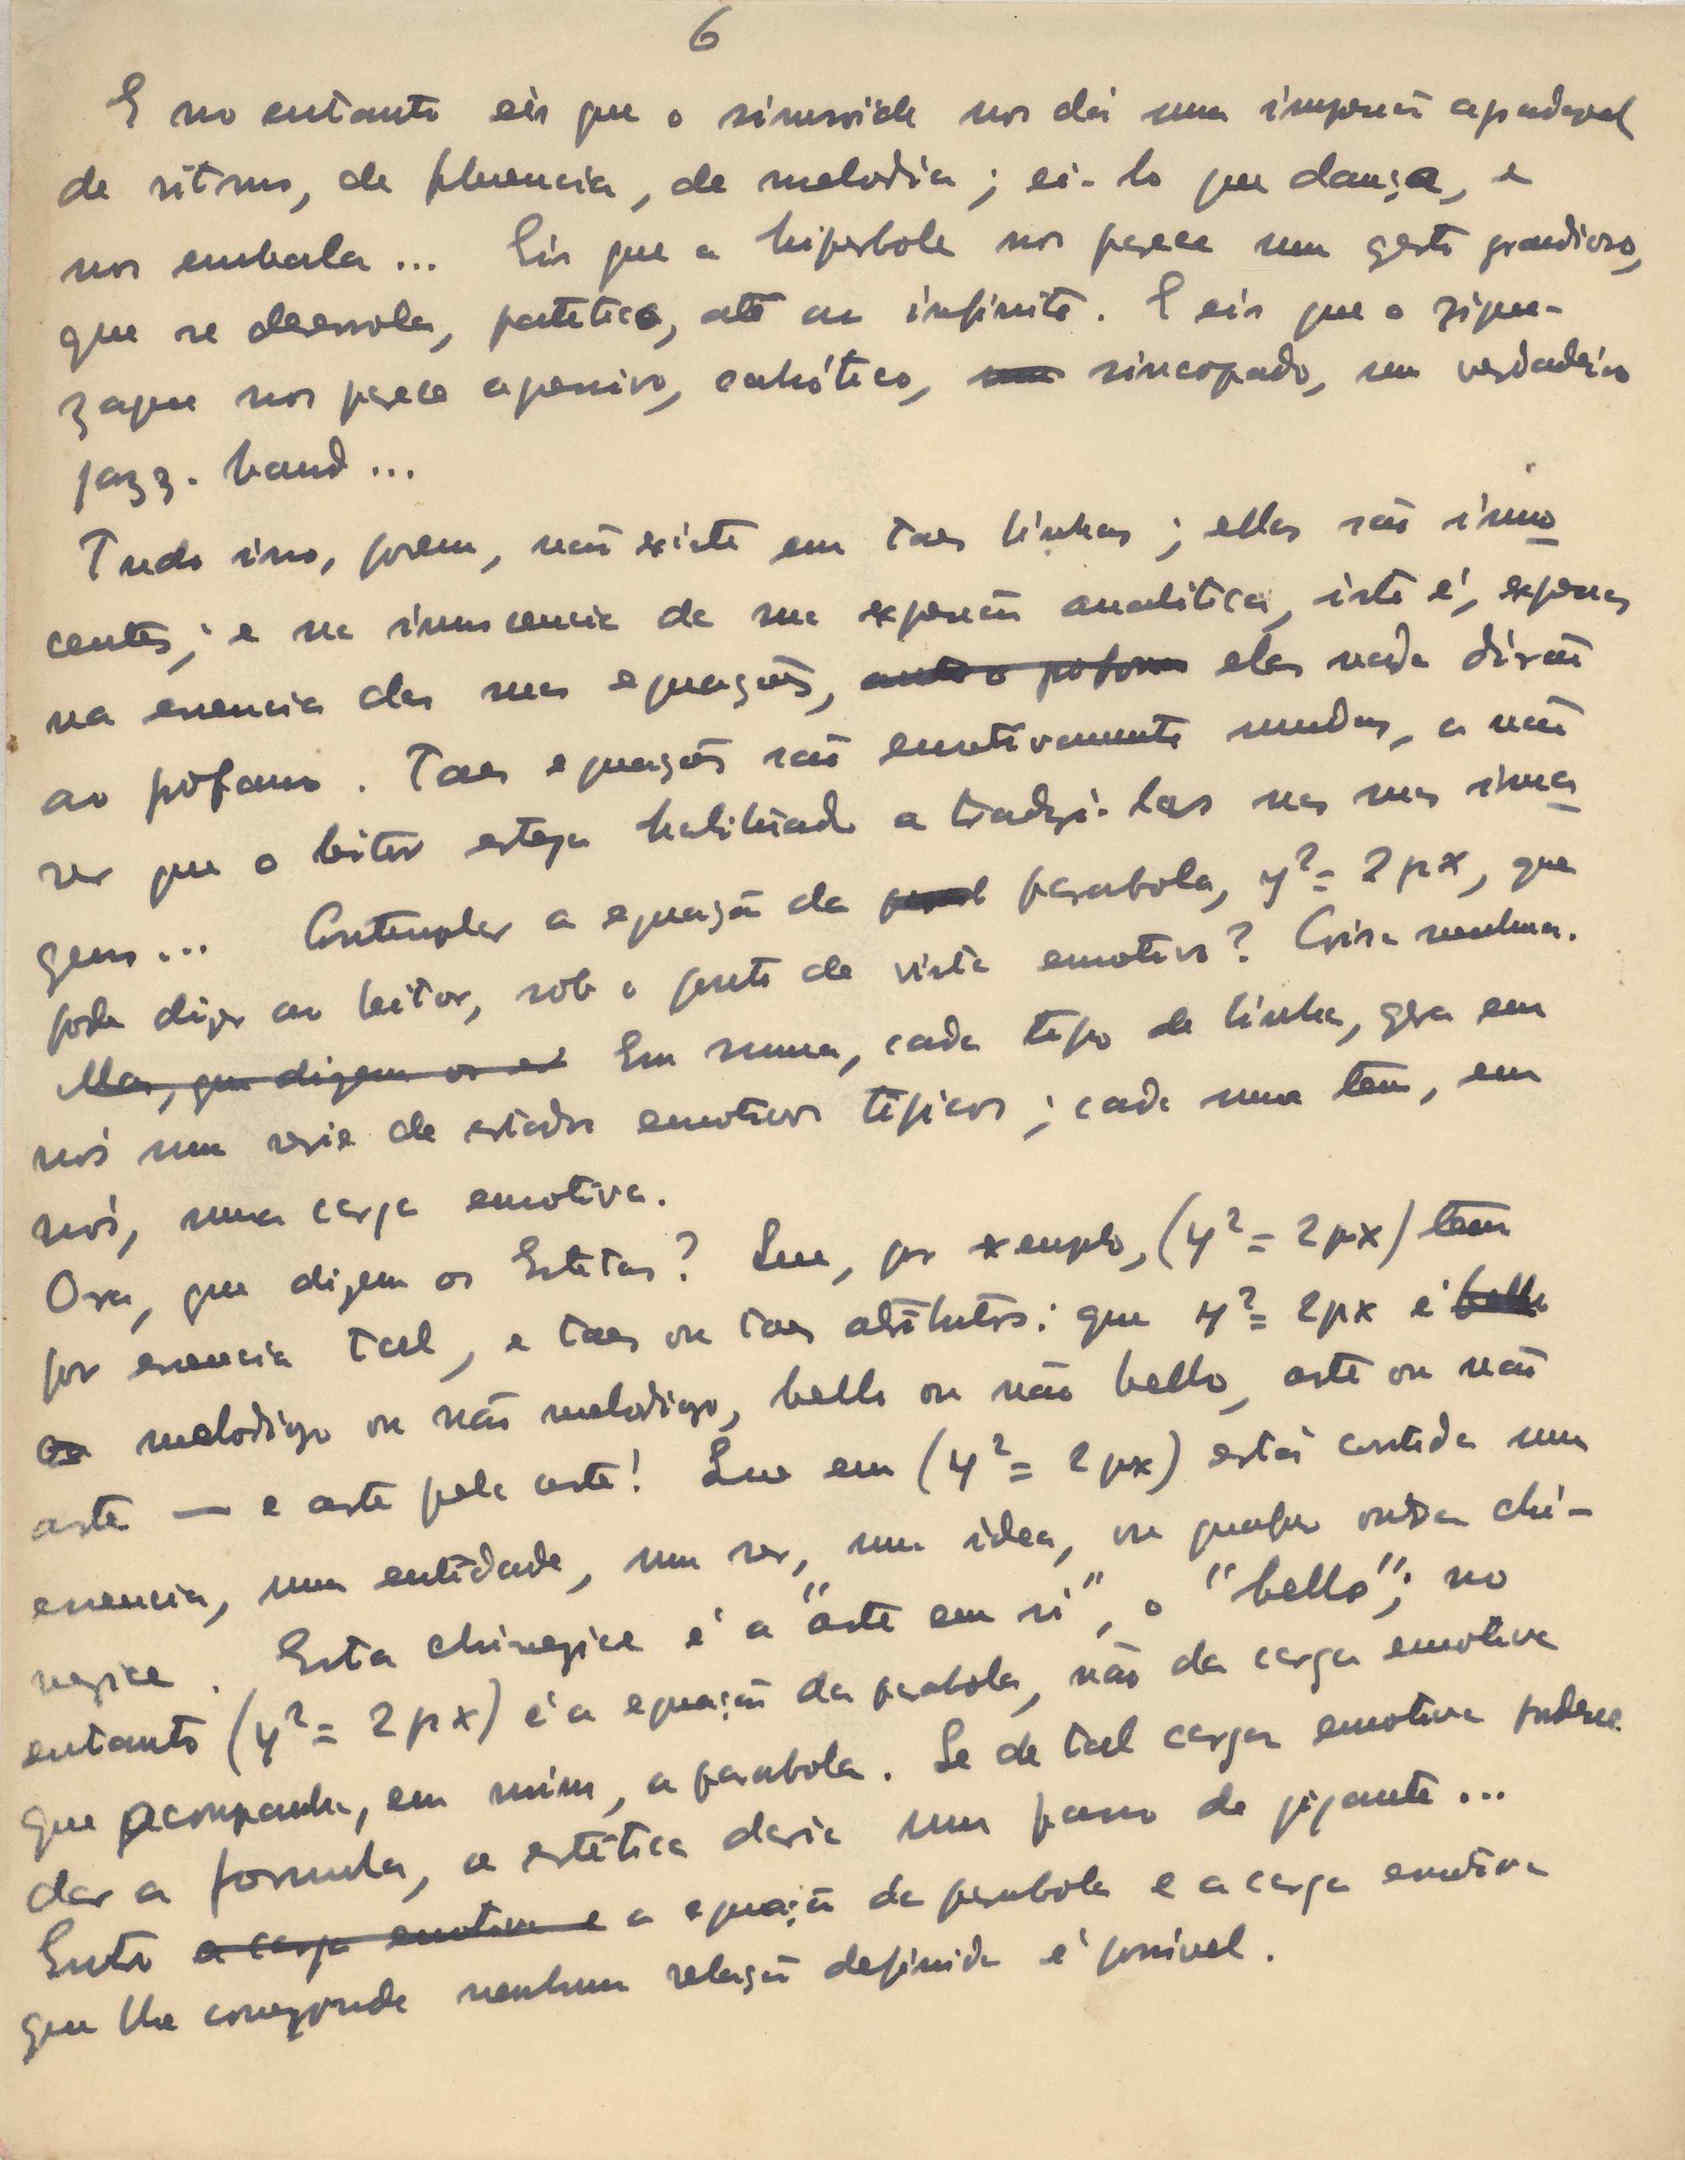 6
E no entanto eis que o sinusoide nos dá uma impressão agradavel
de ritmo, de fluencia, de melodia; ei-lo que dança, e
nos embala... Eis que a hiperbole nos parece um gesto grandioso,
que se desenrola, patetico, até ao infinito. E eis que o zigue-
zague nos parece agressivo, cahótico, um sincopado, um verdadeiro
jazz-band...
Tudo isso, porem, não existe em taes linhas; ellas são inno
centes; e na innocencia da sua expressão analitica, isto é, expressas
na essencia das suas equações, ante o profano elas nada dirão
ao profano. Taes equações são emotivamente mudas, a não
ser que o leitor esteja habilitado a traduzi-las nas suas ima
gens... Contemplar a equação da parab parabola, y² = 2px, que
pode dizer ao leitor, sob o ponto de vista emotivo? Coisa nenhuma.
Mas, que dizem os es Em summa, cada tipo de linha, gera em
nós uma serie de estados emotivos tipicos; cada uma tem, em
nós, uma carga emotiva.
Ora, que dizem os Estetas? Que, por exemplo, (y² = 2px) tem
por essencia tal, e taes ou taes atributos: que y² = 2px é bello
ou melodioso ou não melodioso, bello ou não bello, arte ou não
arte — e arte pela arte! Que em (y² = 2px) está contida uma
essencia, uma entidade, um ser, uma idea, ou qualquer outra chi-
nezice. Esta chinezice é a "arte em si", o "bello"; no
entanto (y² = 2px) é a equação da parabola, não da carga emotiva
que acompanha, em mim, a parabola. Se de tal carga emotiva pudesse
dar a formula, a estética daria um passo de gigante...
Entre a carga emotiva e a equação da parabola e a carga emotiva
que lhe corresponde nenhuma relação definida é possivel.